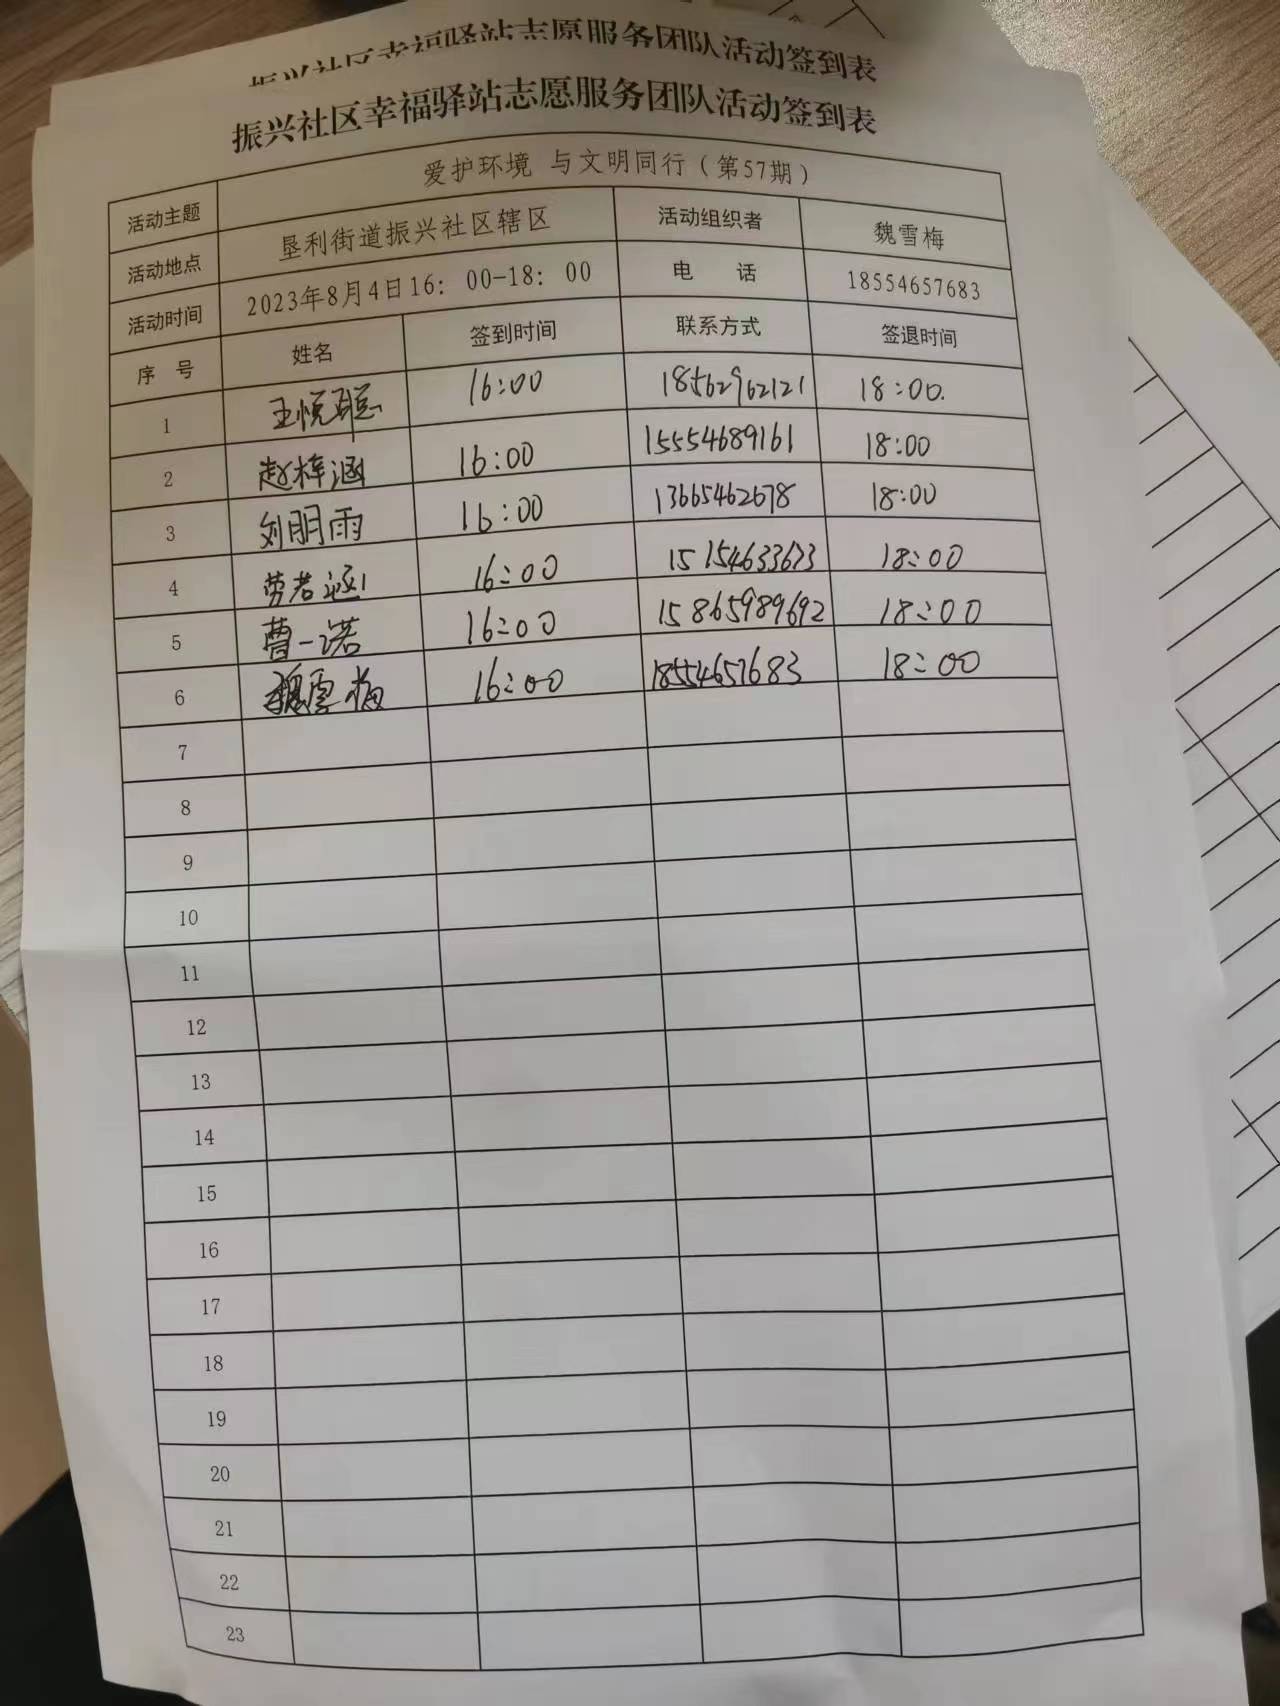 振兴社区幸福驿站志愿服务团队活动签到表
振兴社区幸福驿站志愿服务团队活动签到表
活动主题 爱护环境 与文明同行（第57期）
活动地点 垦利街道振兴社区辖区 活动组织者 魏雪梅
活动时间 2023年8月4日16：00-18：00 电 话 18554657683
序 号 姓名 签到时间 联系方式 签退时间
1 王悦聪 16:00 18562962121 18:00.
2 赵梓涵 16:00 15554689161 18:00
3 刘明雨 16:00 13665462678 18:00
4 劳若涵 16:00 15154633673 18:00
5 曹一诺 16:00 15865989692 18:00
6 魏雪梅 16:00 18554657683 18:00
7
8
9
10
11
12
13
14
15
16
17
18
19
20
21
22
23